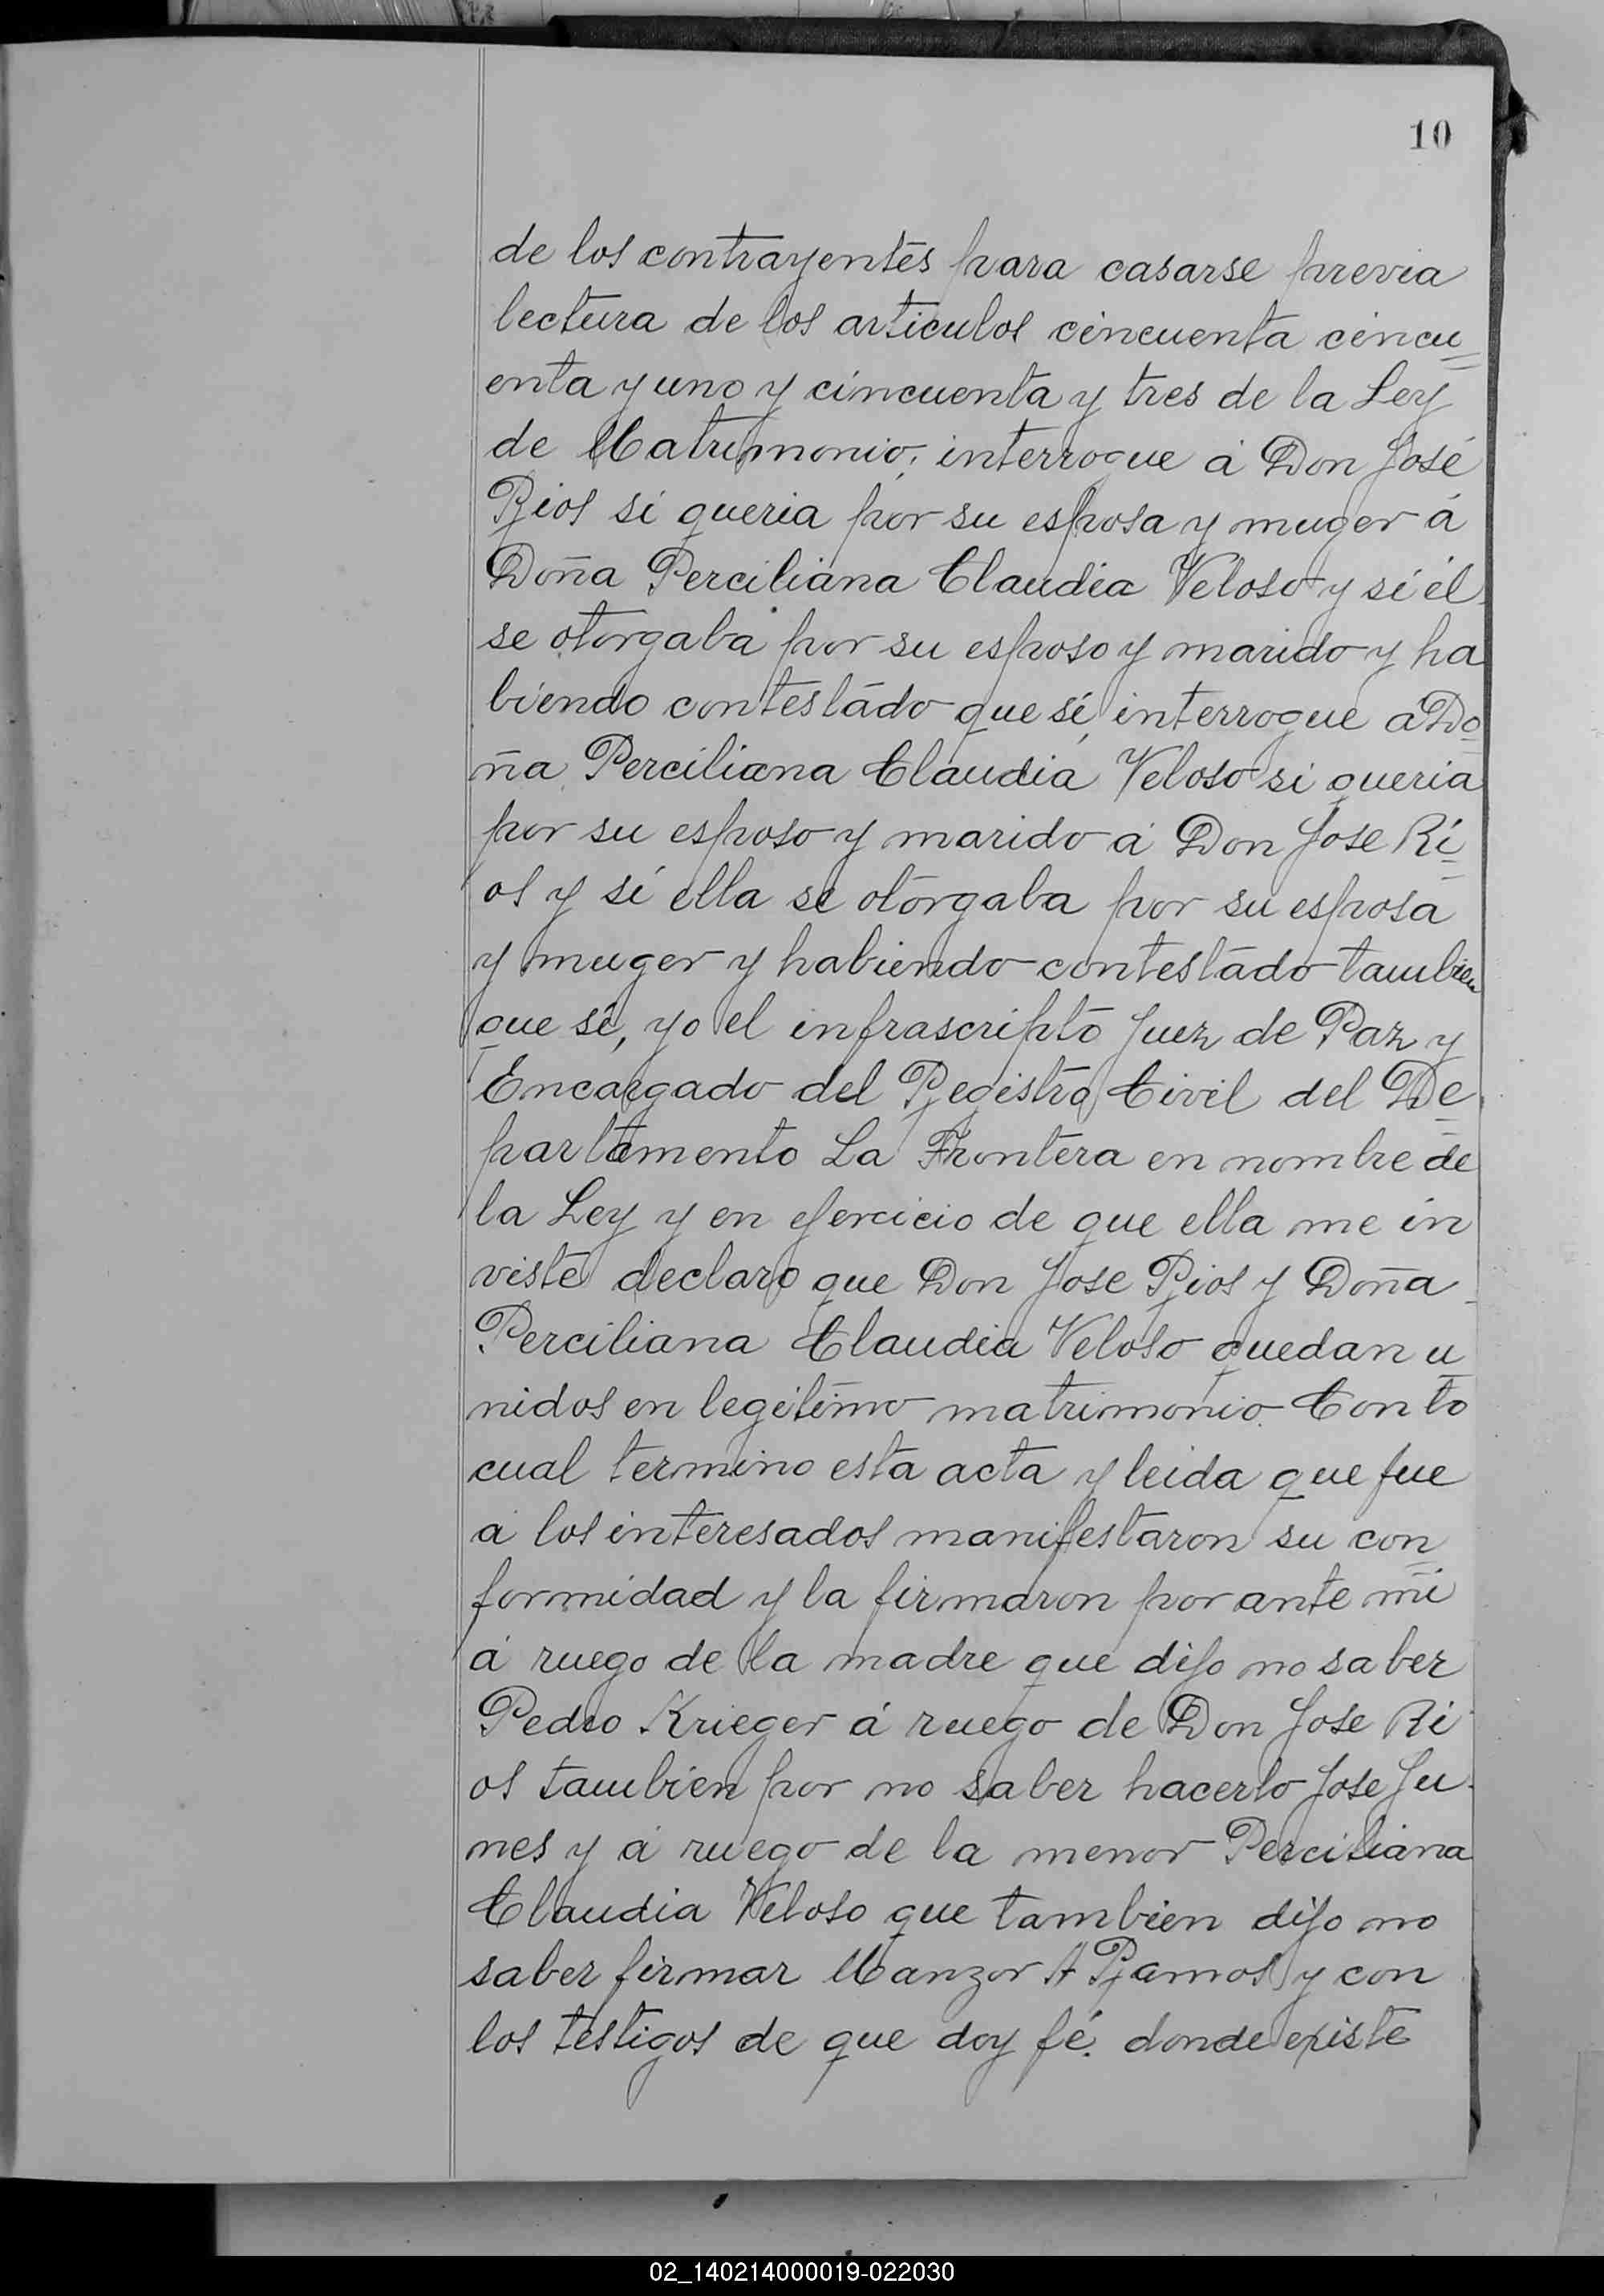 10
de los contrayentes para casarse previa
lectura de los articulos cincuenta cincu=
enta y uno y cincuenta y tres de la Ley
de Matrimonio; interrogue á Don José
Rios si queria por su esposa y muger á
Doña Perciliana Claudia Veloso y si él
se otorgaba por su esposo y marido y ha
biendo contestado que sí, interrogue a Do=
ña Perciliana Claudia Veloso si queria
por su esposo y marido á Don Jose Ri=
os y si ella se otorgaba por su esposa
y muger y habiendo contestado tambien
que sí, yo el infrascripto Juez de Paz y
Encargado del Registro Civil del De=
partamento La Frontera en nombre de
la Ley y en ejercicio de que ella me in
viste declaro que Don Jose Rios y Doña
Perciliana Claudia Veloso quedan u=
nidos en legitimo matrimonio. Con lo
cual termino esta acta y leida que fue
á los interesados manifestaron su con=
formidad y la firmaron por ante mi
á ruego de la madre que dijo no saber
Pedro Krieger á ruego de Don Jose Ri
os tambien por no saber hacerlo Jose Ju-
nes y á ruego de la menor Perciliana
Claudia Veloso que tambien dijo no
saber firmar Manzor A Ramos y con
los testigos de que doy fé. donde existe
02_140214000019-022030